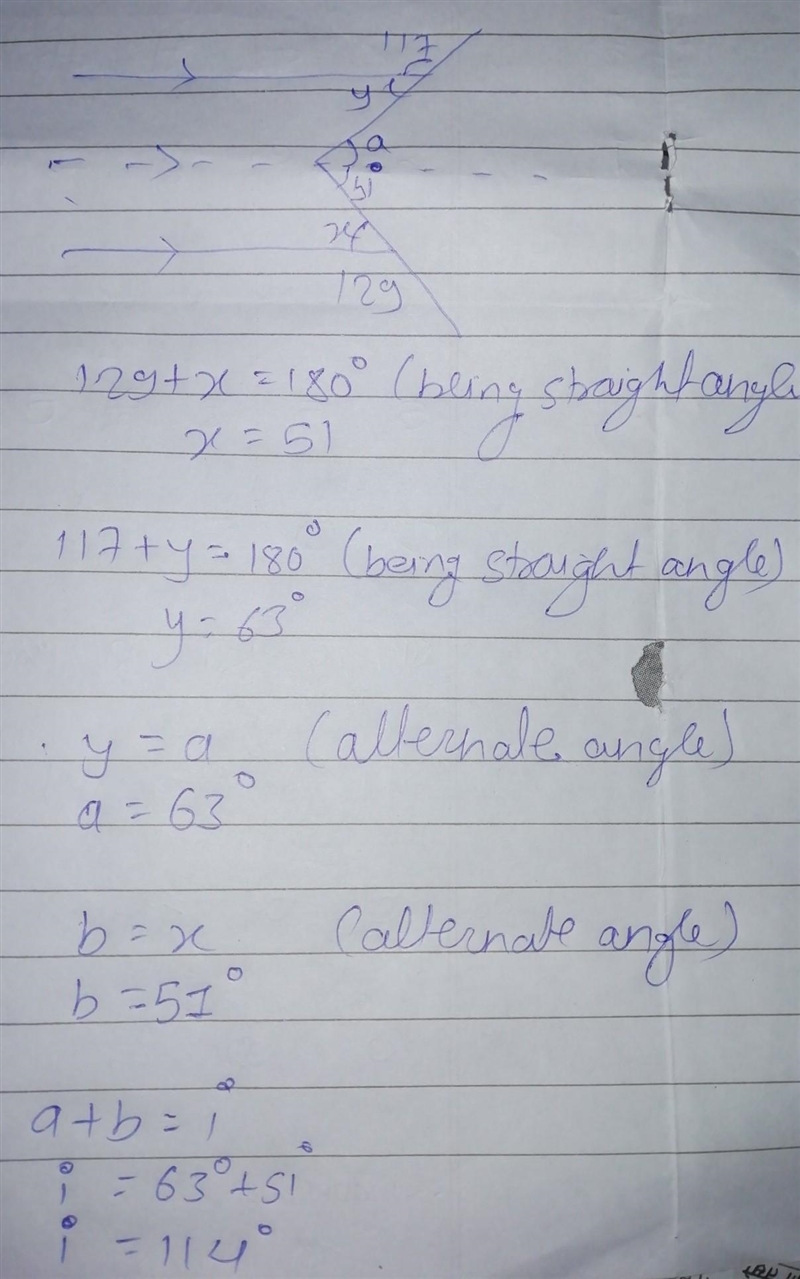 117
y
a
i
51
x
129
129+x=180° (being straight angle
x=51
117+y=180° (being straight angle)
y=63°
y=a (alternate angle)
a=63°
b=x (alternate angle)
b=51°
a+b=i
i=63°+51°
i=114°